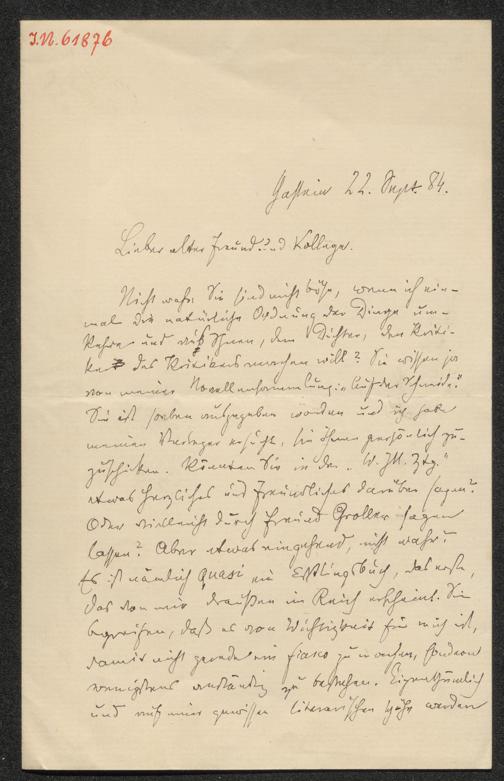 J.N. 61876
Gastein 22. Sept. 84.
Lieber alter Freund und Kollege.
Nicht wahr Sie sind nicht böse, wenn ich ein-
mal die natürliche Ordnung der Dinge um-
kehre und aus Ihnen, dem Dichter, den Kriti-
ker des Kritikers machen will? Sie wissen ja
von meiner Novellensammlung: "Auf der Schneide".
Sie ist soeben ausgegeben worden und ich habe
meinen Verleger ersucht, sie Ihnen persönlich zu-
zuschicken. Könnten Sie in der "W. Ill. Ztg."
etwas Herzliches und Freundliches darüber sagen?
Oder vielleicht durch Freund Groller sagen
lassen? Aber etwas eingehend, nicht wahr?
Es ist nämlich quasi ein Erstlingsbuch, das erste,
das von mir draußen im Reich erscheint. Sie
begreifen, daß es von Wichtigkeit für mich ist,
damit nicht gerade ein fiasco zu machen, sondern
wenigstens anständig zu bestehen. Eigenthümlich
und auf eine gewisse literarische Höhe werden